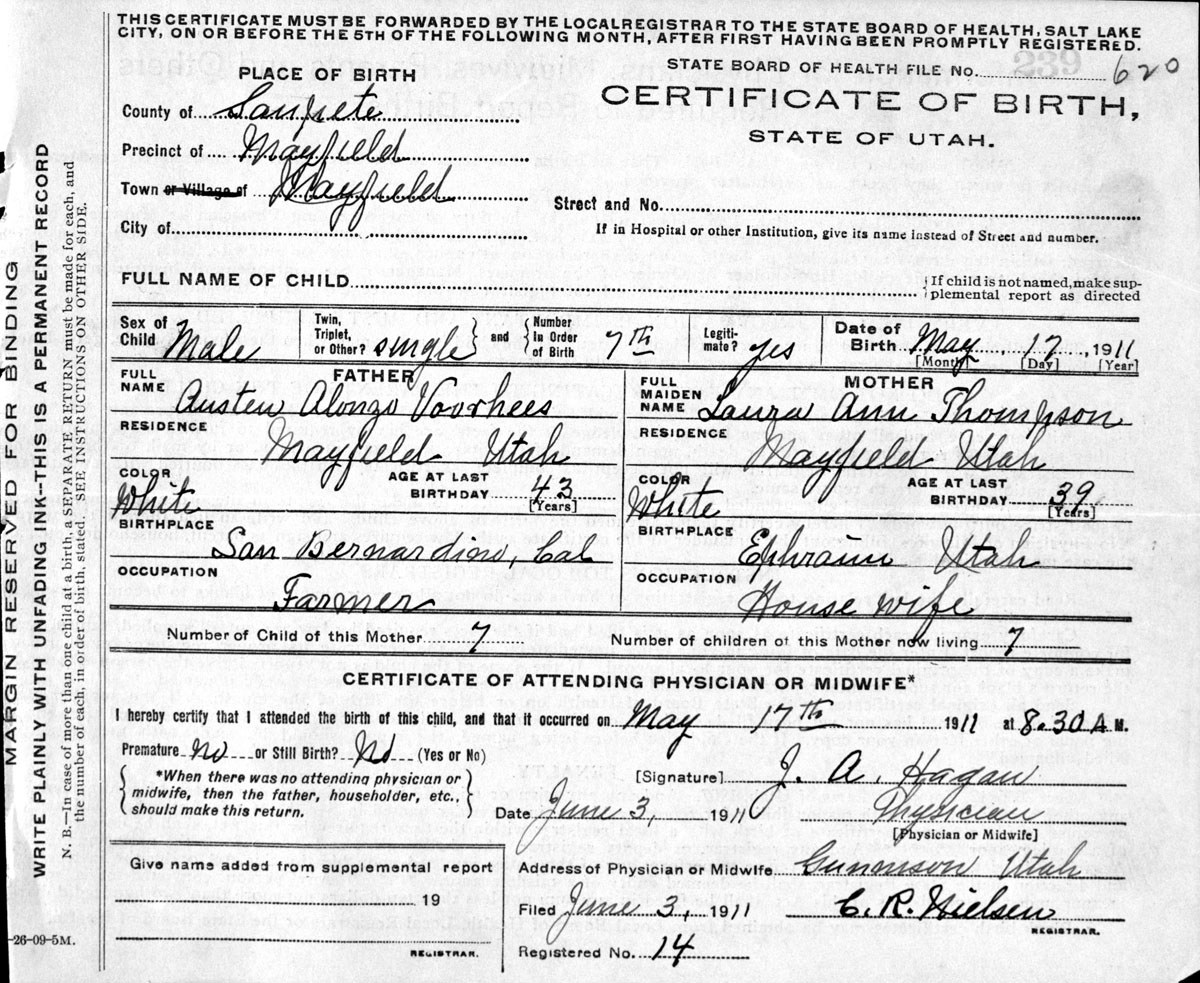 THIS CERTIFICATE MUST BE FORWARDED BY THE LOCAL REGISTRAR TO THE STATE BOARD OF HEALTH, SALT LAKE
CITY, ON OR BEFORE THE 5TH OF THE FOLLOWING MONTH, AFTER FIRST HAVING BEEN PROMPTLY REGISTERED.
STATE BOARD OF HEALTH FILE No. 239 620
PLACE OF BIRTH
CERTIFICATE OF BIRTH,
STATE OF UTAH.
County of Sanpete
Precinct of Mayfield
Town or Village of Mayfield
Street and No.
City of
If in Hospital or other Institution, give its name instead of Street and number.
FULL NAME OF CHILD
{If child is not named, make sup-
plemental report as directed
Sex of Child Male
Twin, Triplet, or Other? single } and { Number In Order of Birth 7th
Legiti-mate? yes
Date of Birth May 17, 1911
[Month] [Day] [Year]
FATHER
FULL NAME Austen Alonzo Voorhees
RESIDENCE Mayfield Utah
COLOR White
AGE AT LAST BIRTHDAY 43
[Years]
BIRTHPLACE San Bernardino, Cal
OCCUPATION Farmer
MOTHER
FULL MAIDEN NAME Laura Ann Thompson
RESIDENCE Mayfield Utah
COLOR White
AGE AT LAST BIRTHDAY 39
[Years]
BIRTHPLACE Ephraim Utah
OCCUPATION House wife
Number of Child of this Mother 7
Number of children of this Mother now living 7
CERTIFICATE OF ATTENDING PHYSICIAN OR MIDWIFE*
I hereby certify that I attended the birth of this child, and that it occurred on May 17th 1911 at 8.30 A M.
Premature no or Still Birth? No (Yes or No)
{ *When there was no attending physician or
midwife, then the father, householder, etc.,
should make this return. }
[Signature] J. A. Hagan
Date June 3, 1911 Physician
[Physician or Midwife]
Give name added from supplemental report
19
REGISTRAR.
Address of Physician or Midwife Gunnison Utah
Filed June 3, 1911 C. R. Nielsen
REGISTRAR.
Registered No. 14
-26-09-5M.
MARGIN RESERVED FOR BINDING
WRITE PLAINLY WITH UNFADING INK--THIS IS A PERMANENT RECORD
N. B.—In case of more than one child at a birth, a SEPARATE RETURN must be made for each, and
the number of each, in order of birth, stated. SEE INSTRUCTIONS ON OTHER SIDE.